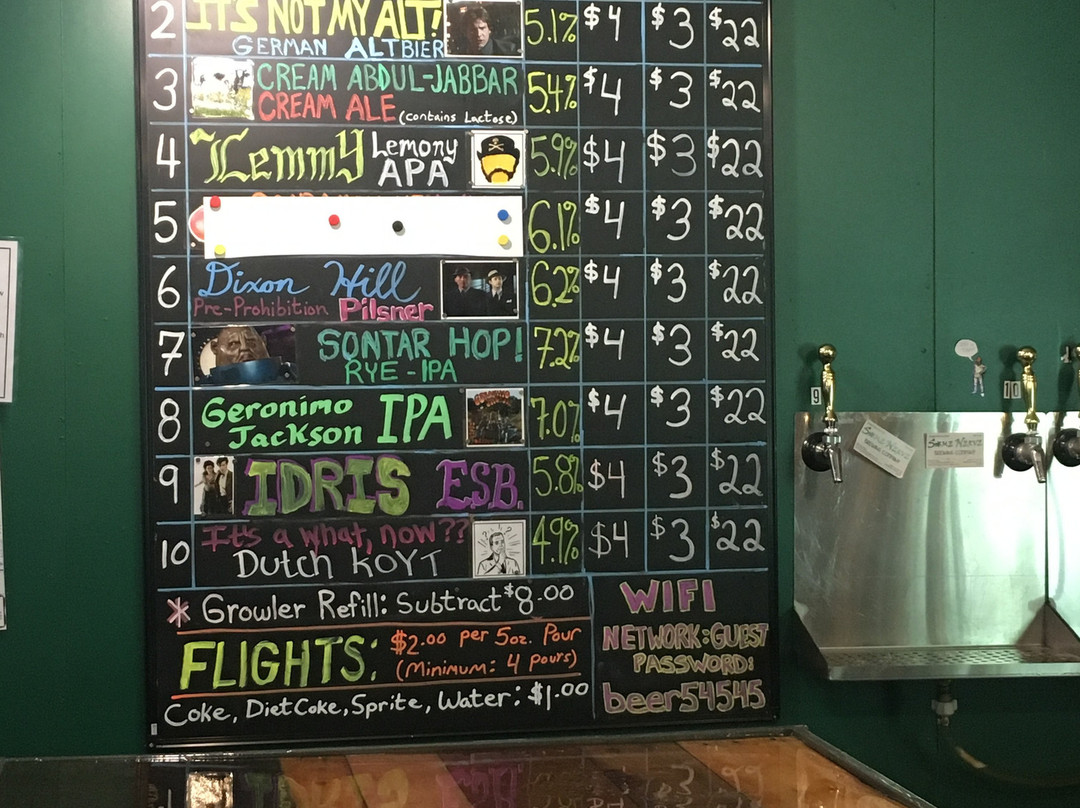 2 IT'S NOT MY ALT! 5.1% $4 $3 $22
GERMAN ALTBIER
3 CREAM ABDUL-JABBAR 5.4% $4 $3 $22
CREAM ALE (contains Lactose)
4 Lemmy Lemony APA 5.9% $4 $3 $22
5 6.1% $4 $3 $22
6 Dixon Hill 6.2% $4 $3 $22
Pre-Prohibition Pilsner
7 SONTAR HOP! 7.2% $4 $3 $22
RYE-IPA
8 Geronimo Jackson IPA 7.0% $4 $3 $22
9 IDRIS ESB. 5.8% $4 $3 $22
10 It's a what, now?? 4.9% $4 $3 $22
Dutch KOYT
* Growler Refill: Subtract $8.00
FLIGHTS: $2.00 per 5oz. Pour
(Minimum: 4 Pours)
Coke, Diet Coke, Sprite, Water: $1.00
WIFI
NETWORK: GUEST
PASSWORD:
beer54545
9
10
SOME NERVE
BREWING COMPANY
SOME NERVE
BREWING COMPANY